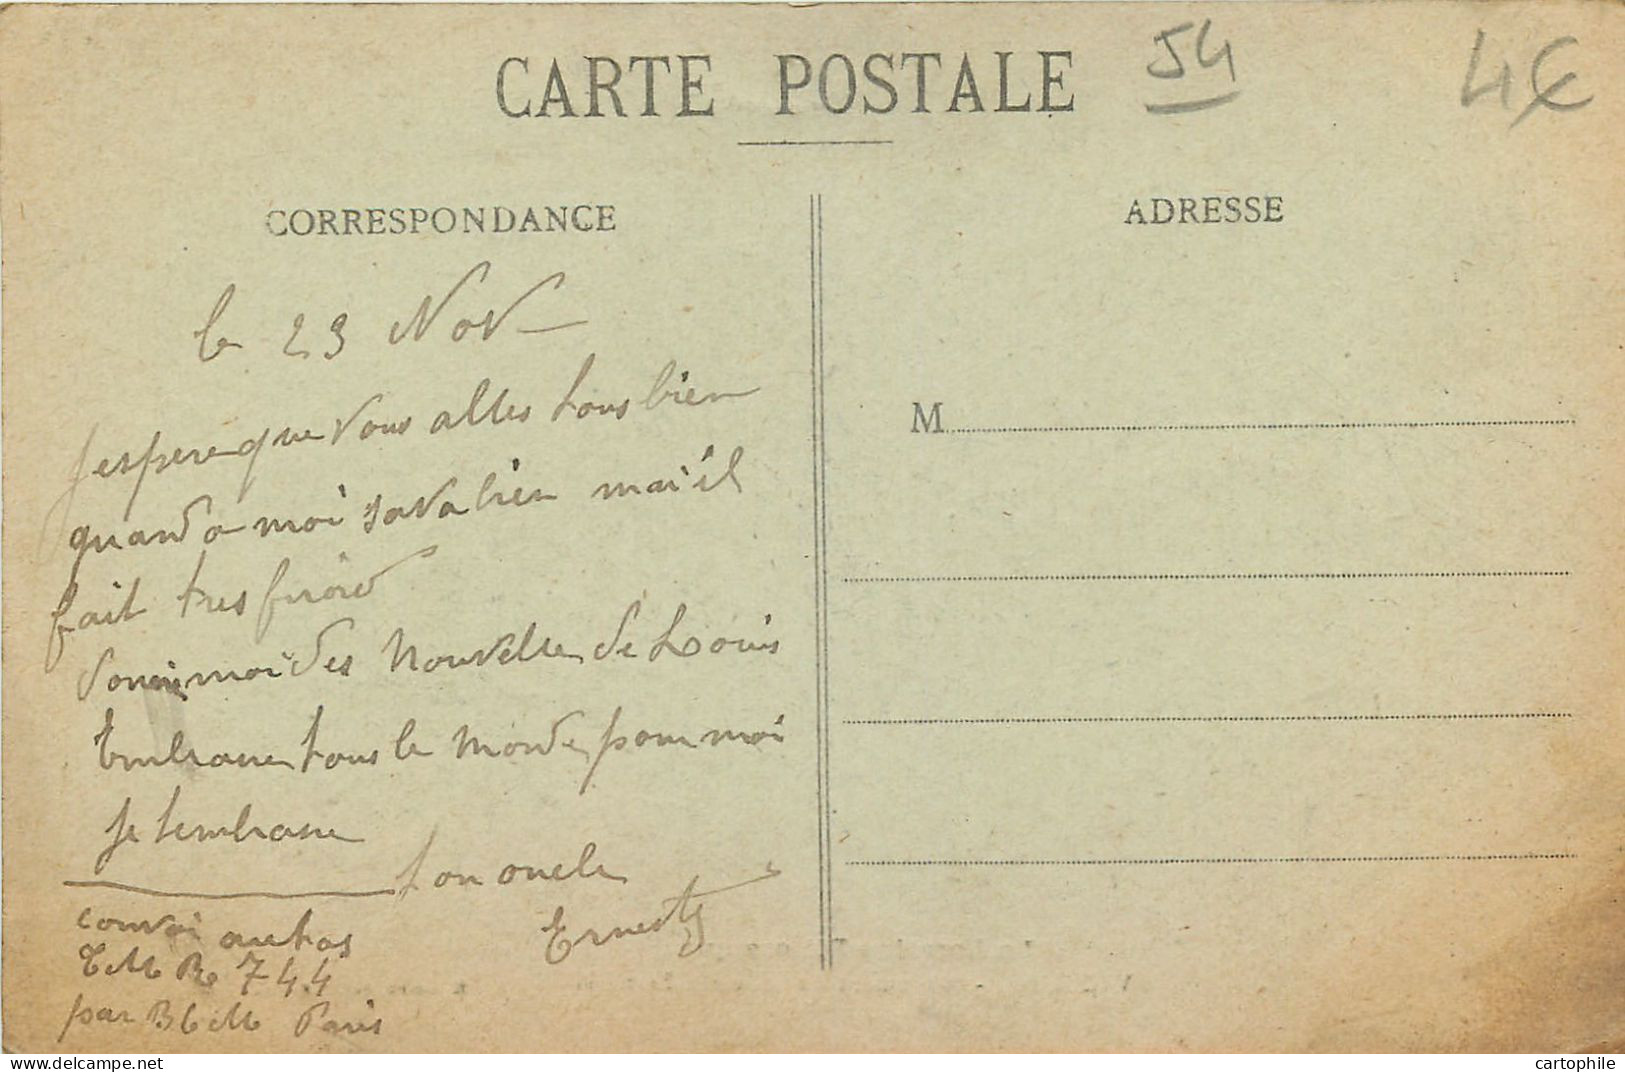 CARTE POSTALE
54
4€
CORRESPONDANCE
ADRESSE
M
le 23 Nov
Jespere que vous alles tous bien
quand a moi sava bien mai il
fait tres froid
moi des nouvelle de Louis
Embrasse tous le monde pour moi
Je tembrasse
ton oncle
Ernest
convoi autos
TM R 744
par BCM Paris
delcampe.net
cartophile